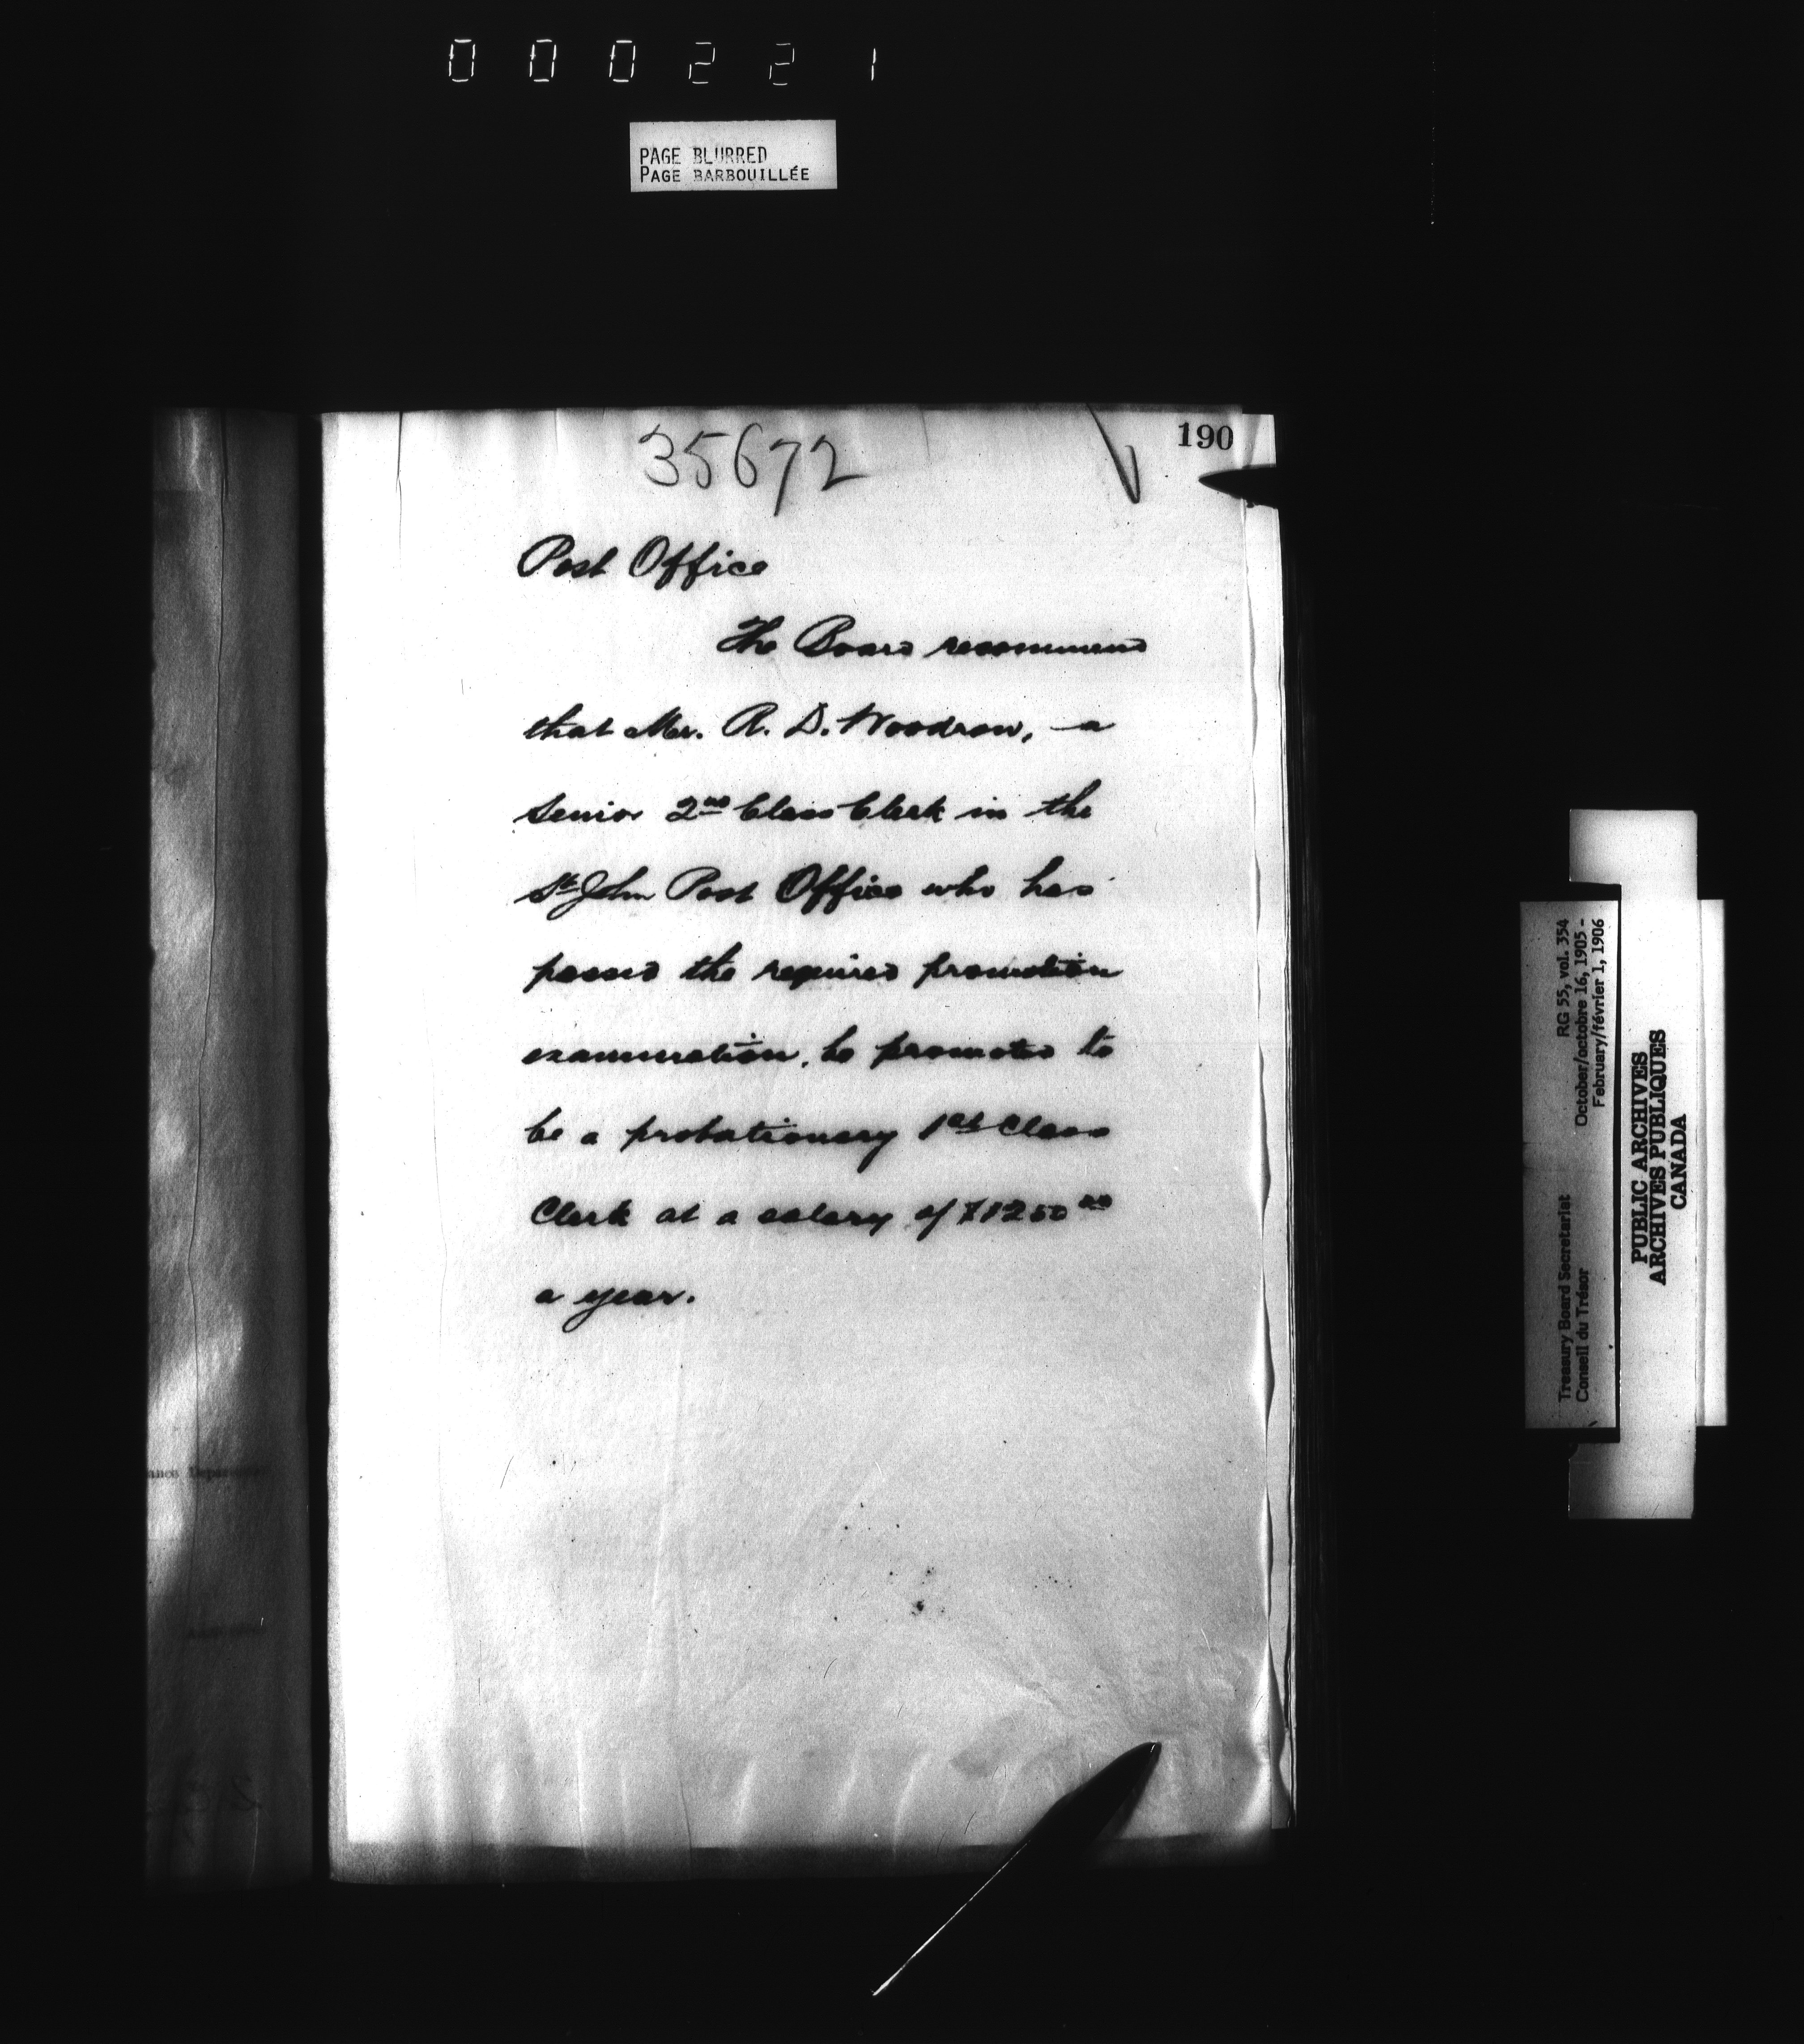 000221
PAGE BLURRED
PAGE BARBOUILLÉE
190
35672
Post Office
The Board recommend
that Mr. A. D. Woodrow, a
Senior 2nd Class Clerk in the
St. John Post Office who has
passed the required promotion
examination, be promoted to
be a probationary 1st Class
Clerk at a salary of $1250 00
a year.
Treasury Board Secretariat RG 55, vol. 354
Conseil du Trésor October/octobre 16, 1905 -
February/février 1, 1906
PUBLIC ARCHIVES
ARCHIVES PUBLIQUES
CANADA